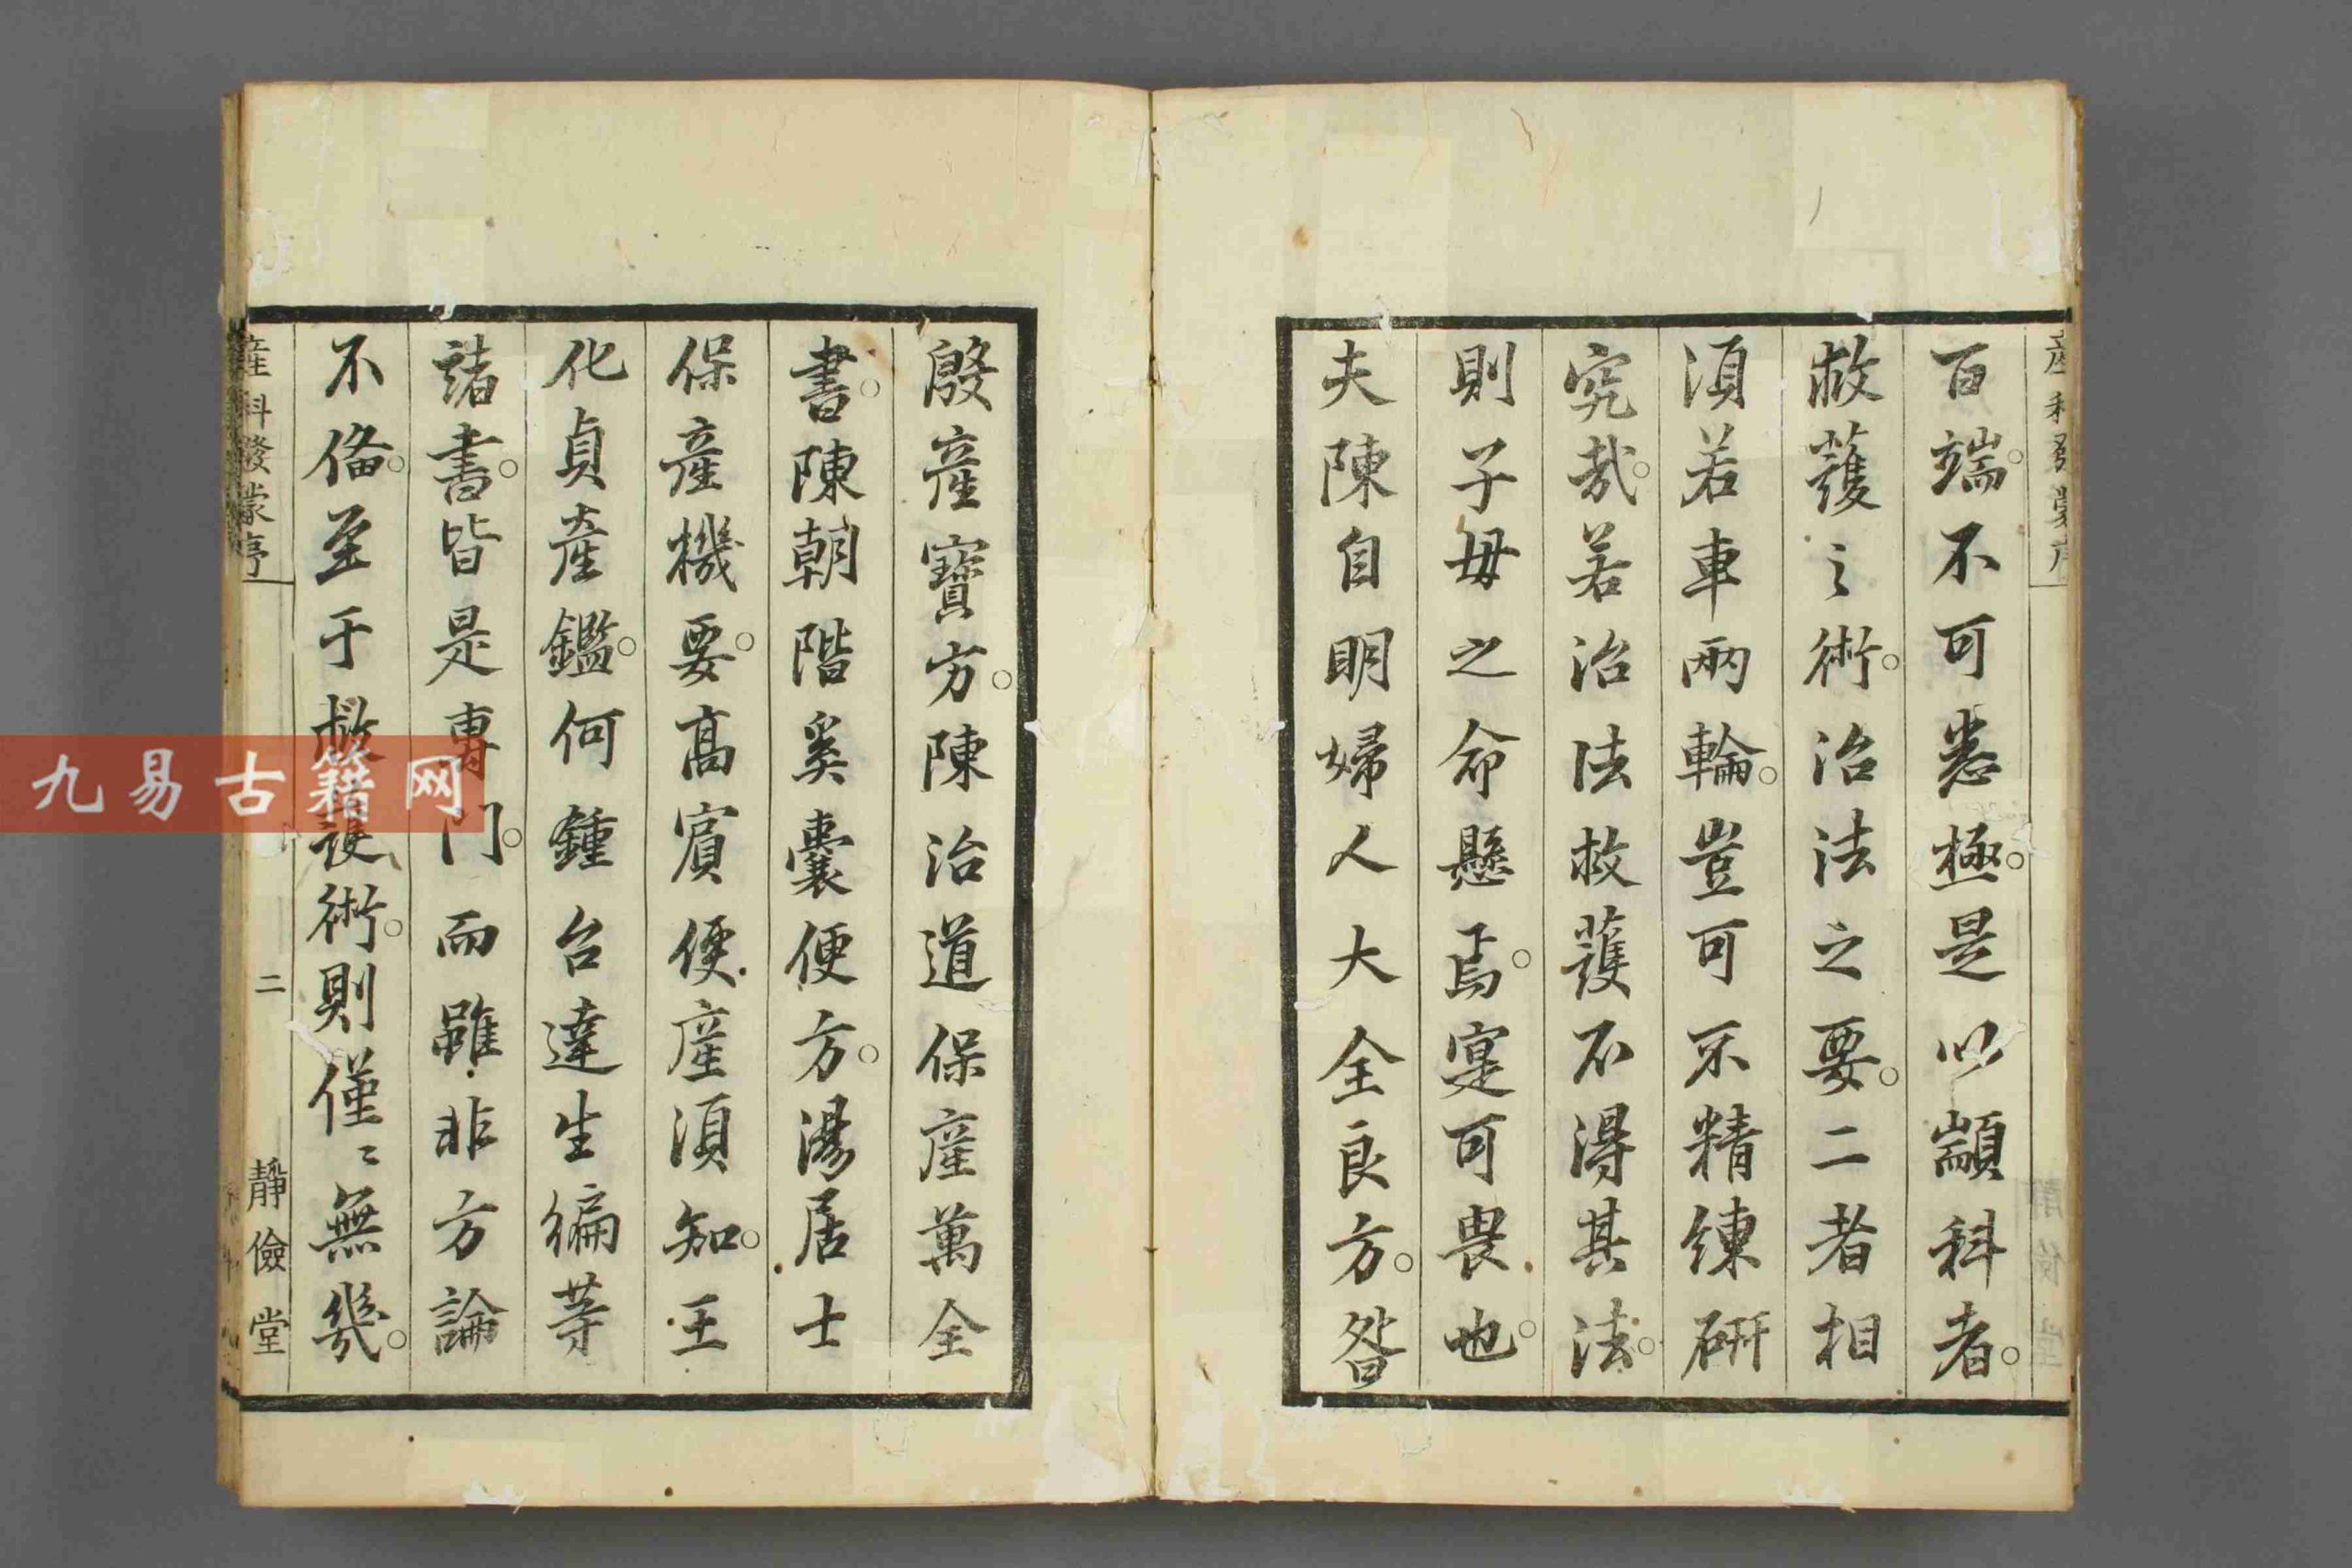 產科發蒙序
百端。不可悉極。是以顓科者。
救護之術。治法之要。二者相
須若車兩輪。豈可不精練研
究哉。若治法救護不得其法。
則子母之命懸焉。寔可畏也。
夫陳自明婦人大全良方。昝
殷產寶方。陳治道保產萬全
書。陳朝階奚囊便方。湯居士
保產機要。高賓便產須知。王
化貞產鑑。何鍾台達生編等
諸書。皆是專門。而雖非方論
不備。至于救護術。則僅〻無幾。
產科發蒙序
二
靜儉堂
九易古籍网